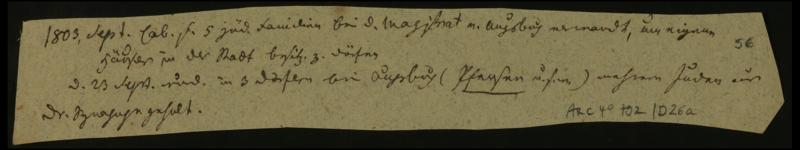 1803, Sept. Cab. f. 5 jüd. Familien bei d. Magistrat v. Augsburg verwandt, um eigene
Häuser in der Stadt besitz. z. dürfen
d. 23 Sept. wurd. in 3 Dörfern bei Augsburg (Pfersen u.s.w.) mehrere Juden aus
der Synagoge geholt.
56
ARC 4° 792 / D26a